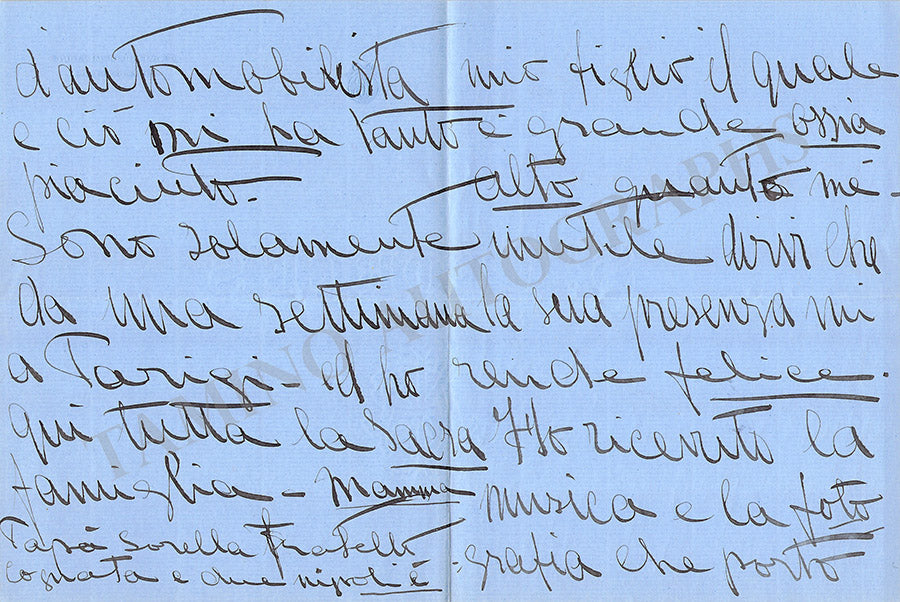 d'automobilista
e ciò mi ha tanto
piaciuto.
Sono solamente
da una settimana
a Parigi - ed ho
qui tutta la sacra
famiglia - Mamma
Papà Sorella Fratelli
cognata e due nipoti è
mio figlio il quale
è grande ossia
alto quanto me -
inutile dirvi che
la sua presenza mi
rende felice.
Ho ricevuto la
musica e la foto
-grafia che porto
TAMINO AUTOGRAPHS